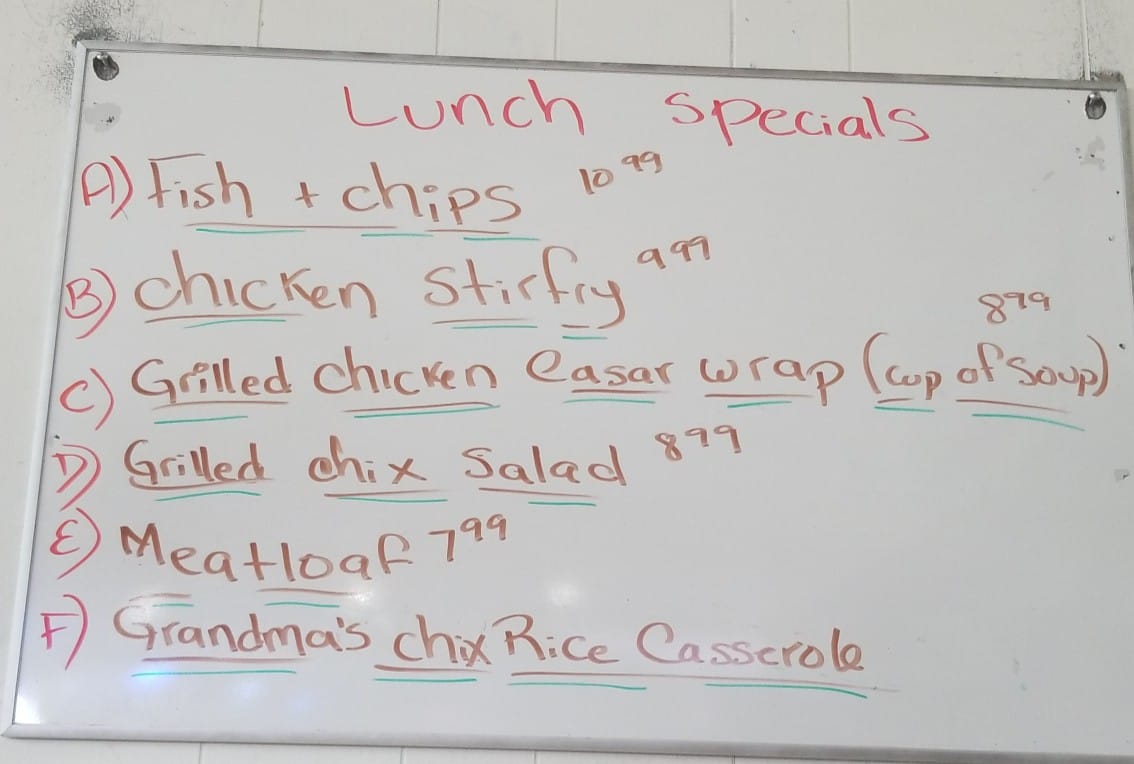 Lunch Specials
A) Fish + chips 10 99
B) chicken stirfry 9 99
8 99
C) Grilled chicken Ceasar wrap (cup of soup)
D) Grilled chix Salad 8 99
E) Meatloaf 7 99
F) Grandma's chix Rice Casserole